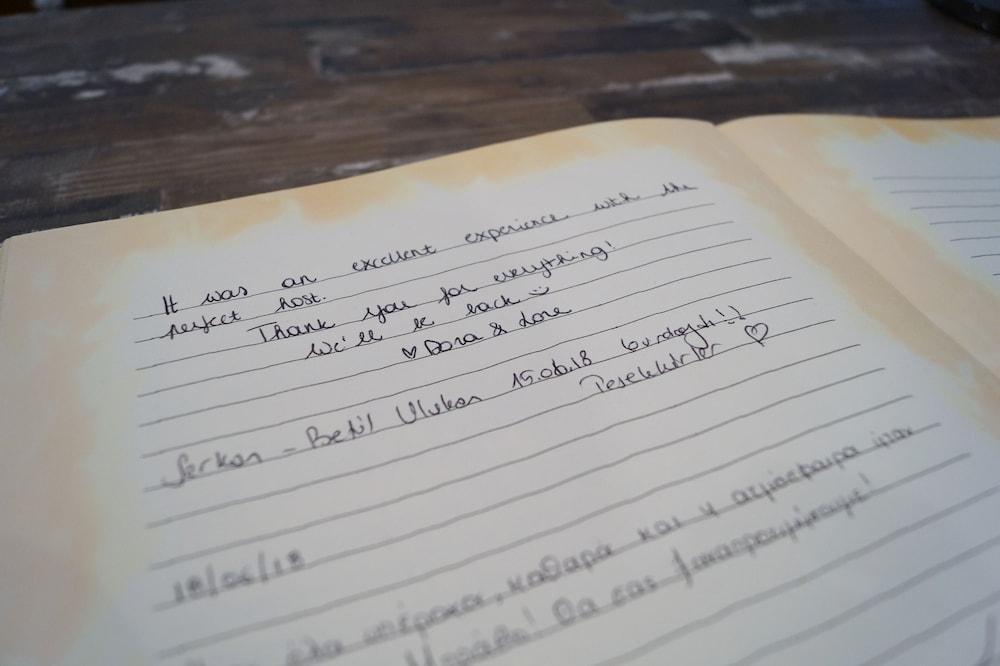 It was an excellent experience with the
perfect host.
Thank you for everything!
We'll be back :)
♡ Dora & Lore
Serkan - Betül Ulukan 15.06.18 burdaydı!!
Teşekkürler ♡
18/06/18
όλα υπέροχα, καθαρά και η ατμόσφαιρα ήταν
Θα σας ξαναπροτιμήσουμε!